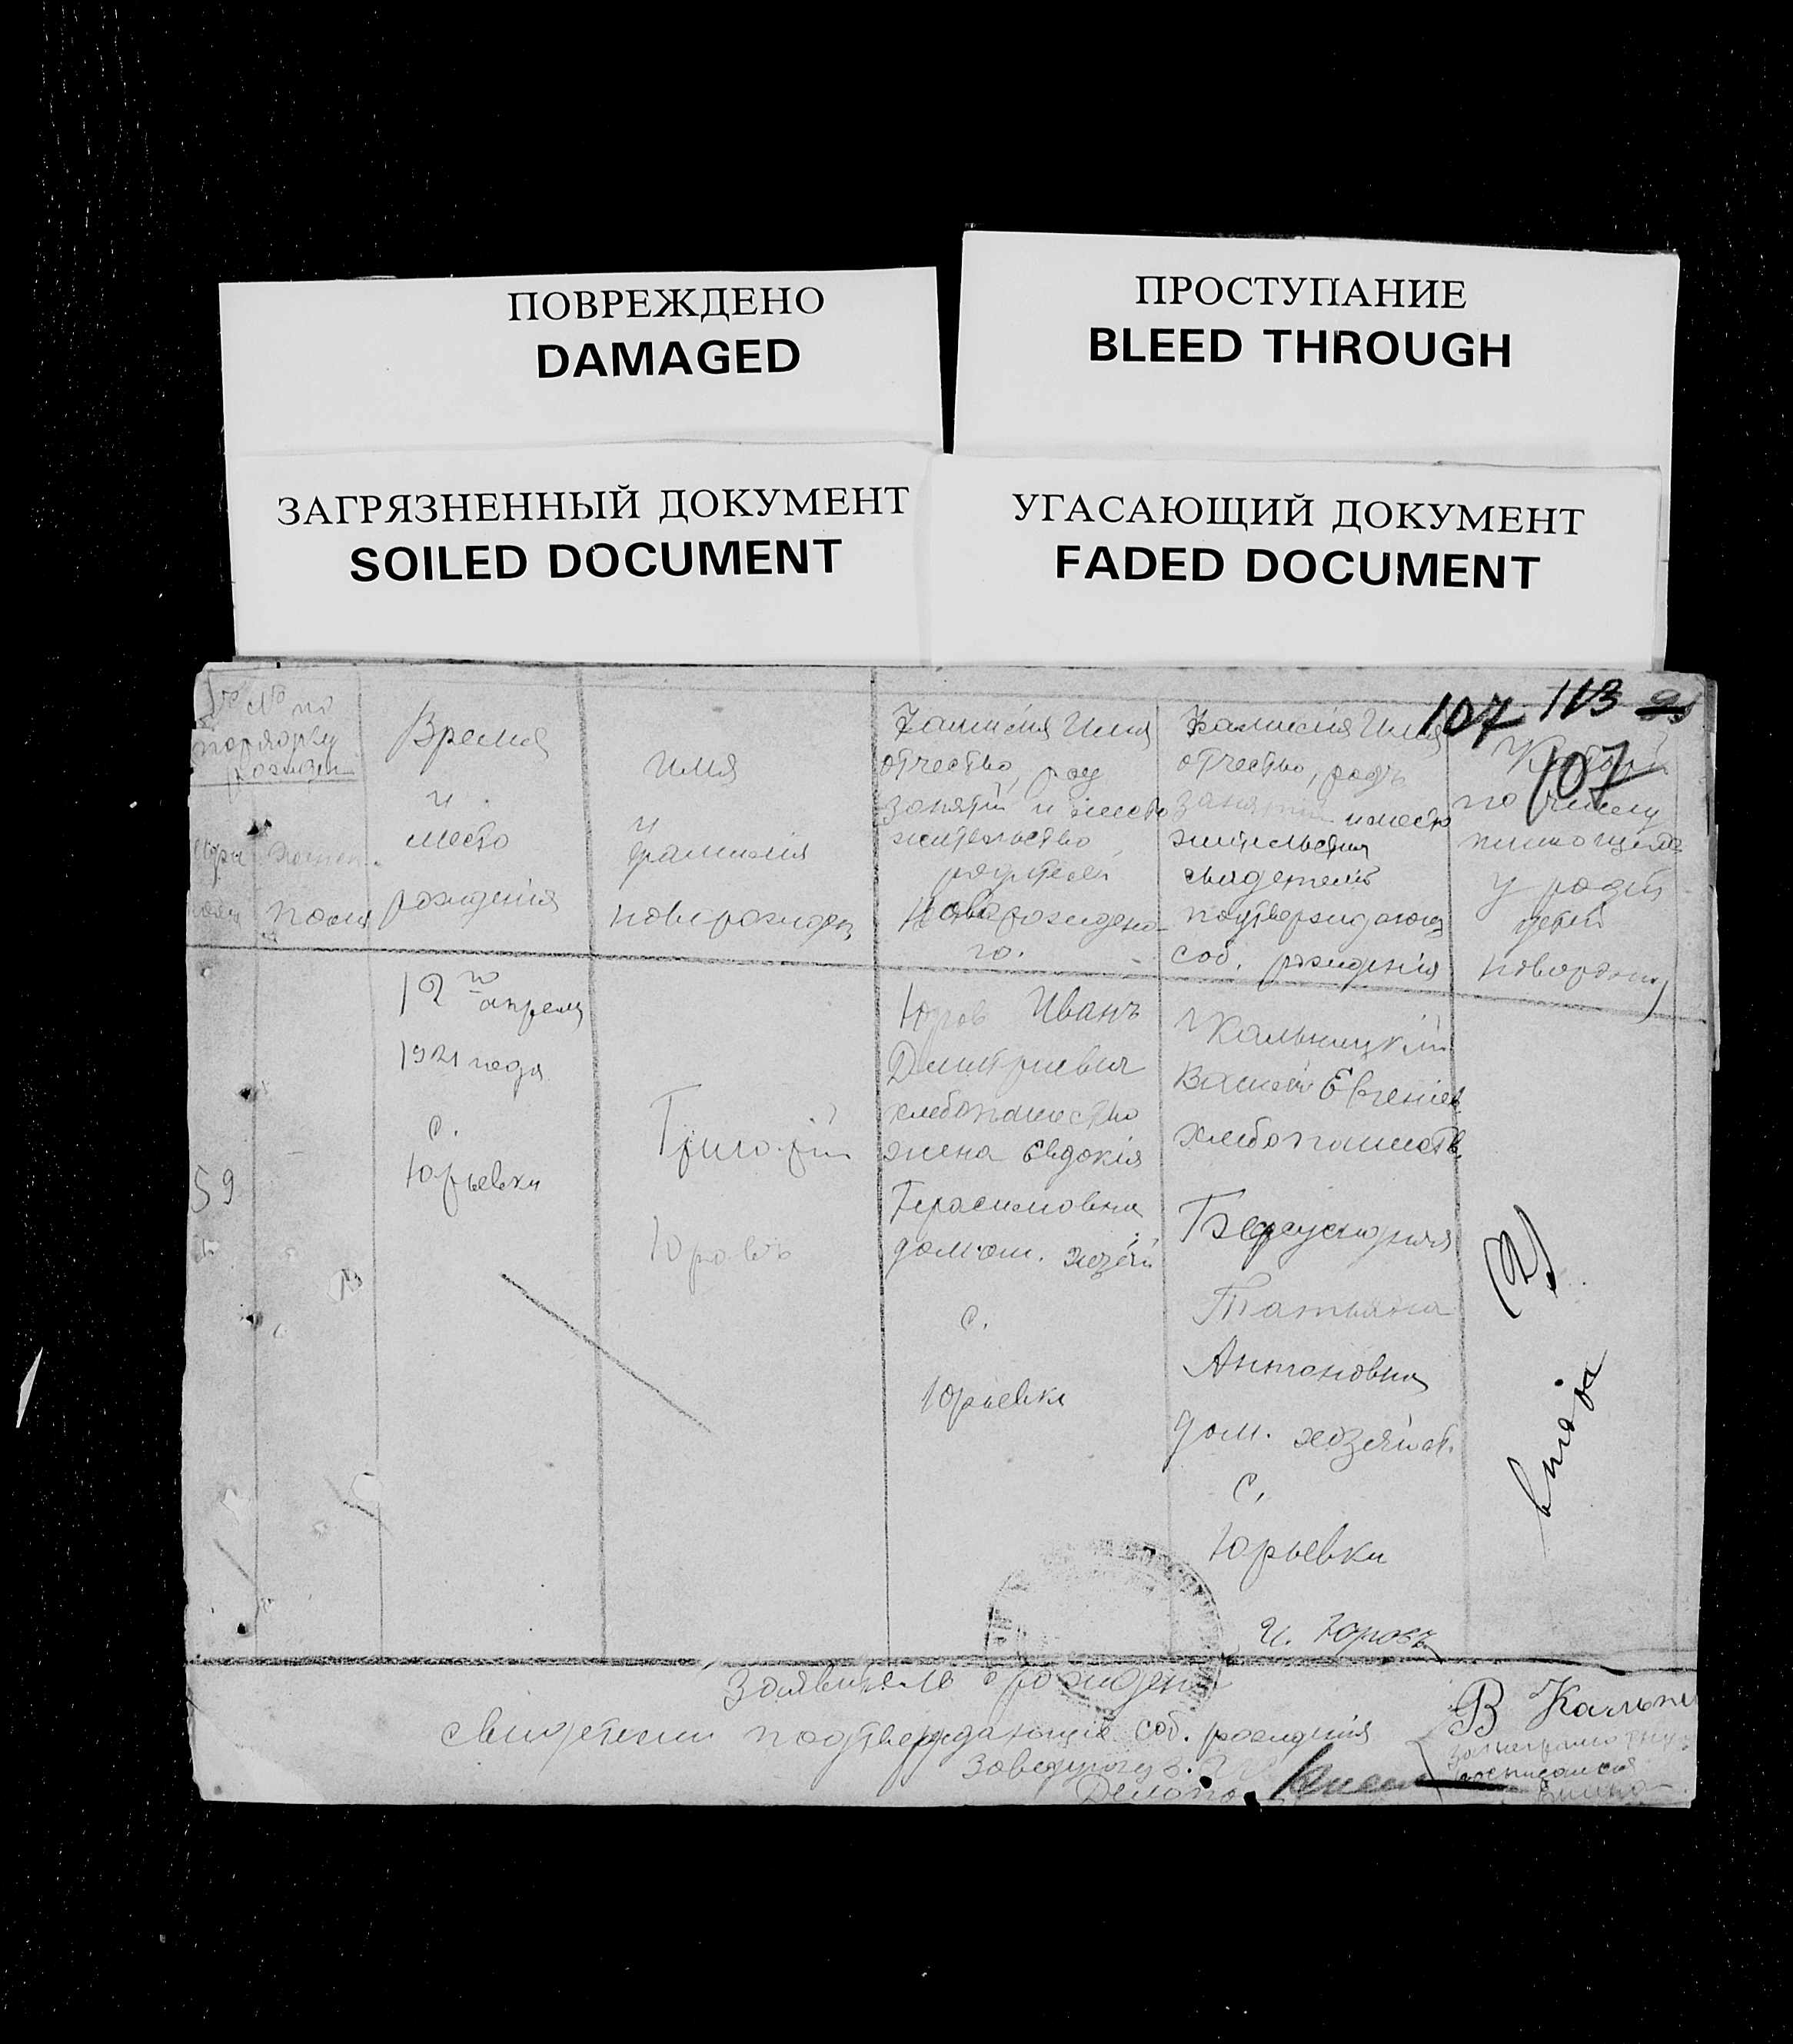 ПОВРЕЖДЕНО
DAMAGED
ПРОСТУПАНИЕ
BLEED THROUGH
ЗАГРЯЗНЕННЫЙ ДОКУМЕНТ
SOILED DOCUMENT
УГАСАЮЩИЙ ДОКУМЕНТ
FADED DOCUMENT
107 113
107
№ № по
порядку
рожден
муж
женск.
пола
пола
Время
и
место
рождения
имя
и
фамилия
новорожден
Фамилия Имя
отчество, род
занятій и место
жительство
родителей
новорожденно-
го.
Фамилия Имя
отчество, родъ
занятій и место
жительства
свидетелей
подтверждающ
соб. рождения
Который
по числу
у родит
детей
новорожд
59
12го апреля
1921 года
с.
Юрьевки
Григорій
Юровъ
Юров Иванъ
Дмитриевич
хлебопашество
жена Евдокія
Герасимовна
домаш. хозяй
с.
Юрьевки
Кальницкій
Василій Евгениев
хлебопашеств.
Татьяна
Антоновна
дом. хозяйст.
с.
Юрьевки
И. Юровъ
Заявитель о рожден
свидетели подтверждающіе соб. рождения
В Кальни
Заведующ
Делопр.
расписался